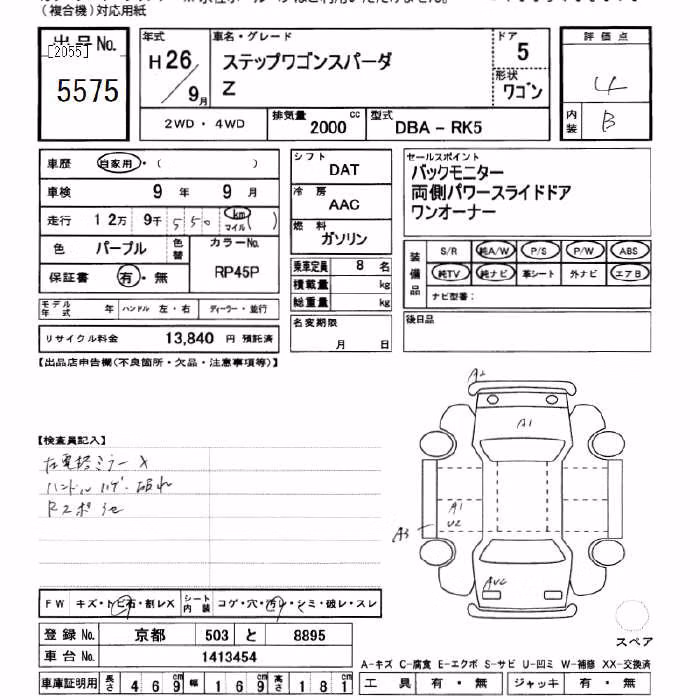 (複合機)対応用紙
出品No.
[2055]
5575
年式
H26/9月
車名・グレード
ステップワゴンスパーダ
Z
ドア
5
形状
ワゴン
評価点
4
内装
B
2WD・4WD
排気量 2000 cc
型式 DBA-RK5
車歴 自家用・( )
車検 9年 9月
走行 12万 9千 550 km マイル ( )
色 パープル 色替
カラーNo. RP45P
保証書 有・無
モデル年式 年 ハンドル 左・右 ディーラー・並行
リサイクル料金 13,840 円 預託済
シフト
DAT
冷房
AAC
燃料
ガソリン
乗車定員 8 名
積載量 kg
総重量 kg
名変期限
月 日
セールスポイント
バックモニター
両側パワースライドドア
ワンオーナー
装備品
S/R 純A/W P/S P/W ABS
純TV 純ナビ 革シート 外ナビ エアB
ナビ型番:
後日品
【出品店申告欄(不良箇所・欠品・注意事項等)】
【検査員記入】
左電格ミラー X
ハンドル ハゲ・破れ
A2
A1
A1
U2
A3
スペア
FW キズ・トビ石・割レX
シート内装 コゲ・穴・汚レ・シミ・破レ・スレ
登録No. 京都 503 と 8895
車台No. 1413454
車庫証明用 長さ 469 幅 169 高さ 181
A-キズ C-腐食 E-エクボ S-サビ U-凹ミ W-補修 XX-交換済
工具 有・無 ジャッキ 有・無